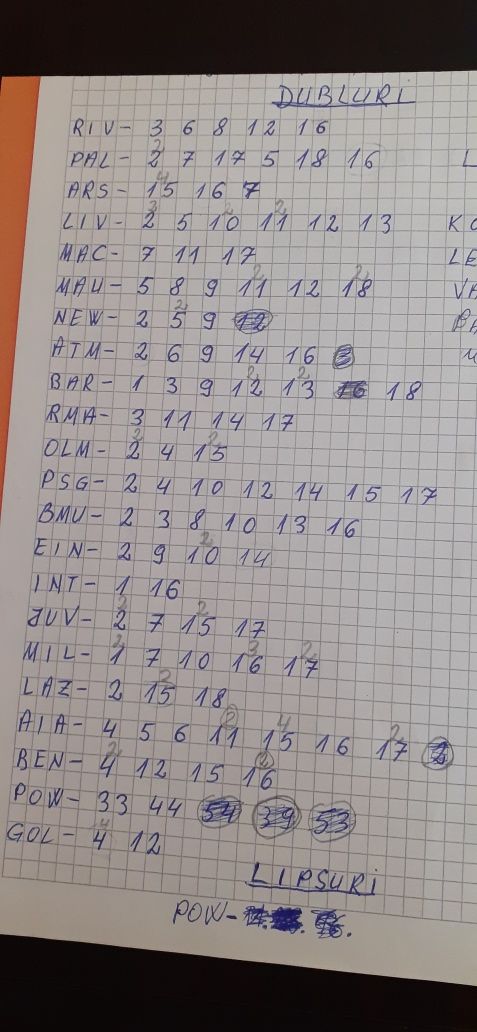 DUBLURI
RIV- 3 6 8 12 16
PAL- 2 7 17 5 18 16
ARS- 15 16 7
LIV- 2 5 10 11 12 13
MAC- 7 11 17
MAU- 5 8 9 11 12 18
NEW- 2 5 9 12
ATM- 2 6 9 14 16
BAR- 1 3 9 12 13 16 18
RMA- 3 11 14 17
OLM- 2 4 15
PSG- 2 4 10 12 14 15 17
BMU- 2 3 8 10 13 16
EIN- 2 9 10 14
INT- 1 16
JUV- 2 7 15 17
MIL- 1 7 10 16 17
LAZ- 2 15 18
AIA- 4 5 6 11 15 16 17 2
BEN- 4 12 15 16
POW- 33 44 54 39 53
GOL- 4 12
LIPSURI
POW-